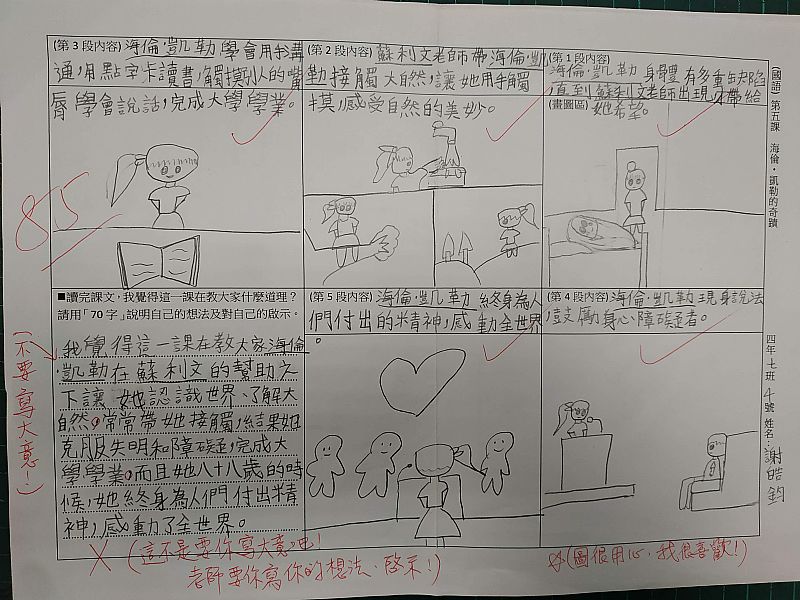 (國語) 第五課 海倫・凱勒的奇蹟
四年七班4號 姓名:謝皓鈞
(第1段內容)
海倫・凱勒 身體有多重缺陷
,直到蘇利文老師出現,才帶給
(畫圖區) 她希望。
(第2段內容) 蘇利文老師帶海倫・凱
勒接觸大自然,讓她用手觸
摸,感受自然的美妙。
(第3段內容) 海倫・凱勒 學會用手溝
通,用點字卡讀書,觸摸別人的嘴
唇學會說話,完成大學學業。
(第4段內容) 海倫・凱勒現身說法
,鼓勵身心障礙者。
(第5段內容) 海倫・凱勒 終身為人
們付出的精神,感動全世界
。
■讀完課文,我覺得這一課在教大家什麼道理?
請用「70字」說明自己的想法及對自己的啟示。
我覺得這一課在教大家海倫
・凱勒在蘇利文的幫助之
下讓她認識世界、了解大
自然,常常帶她接觸,結果她
克服失明和障礙,完成大
學學業,而且她八十八歲的時
候,她終身為人們付出精
神,感動了全世界。
85
(不要寫大意!)
×(這不是要你寫大意吧!
老師要你寫你的想法、啟示!)
(圖很用心,我很喜歡!)